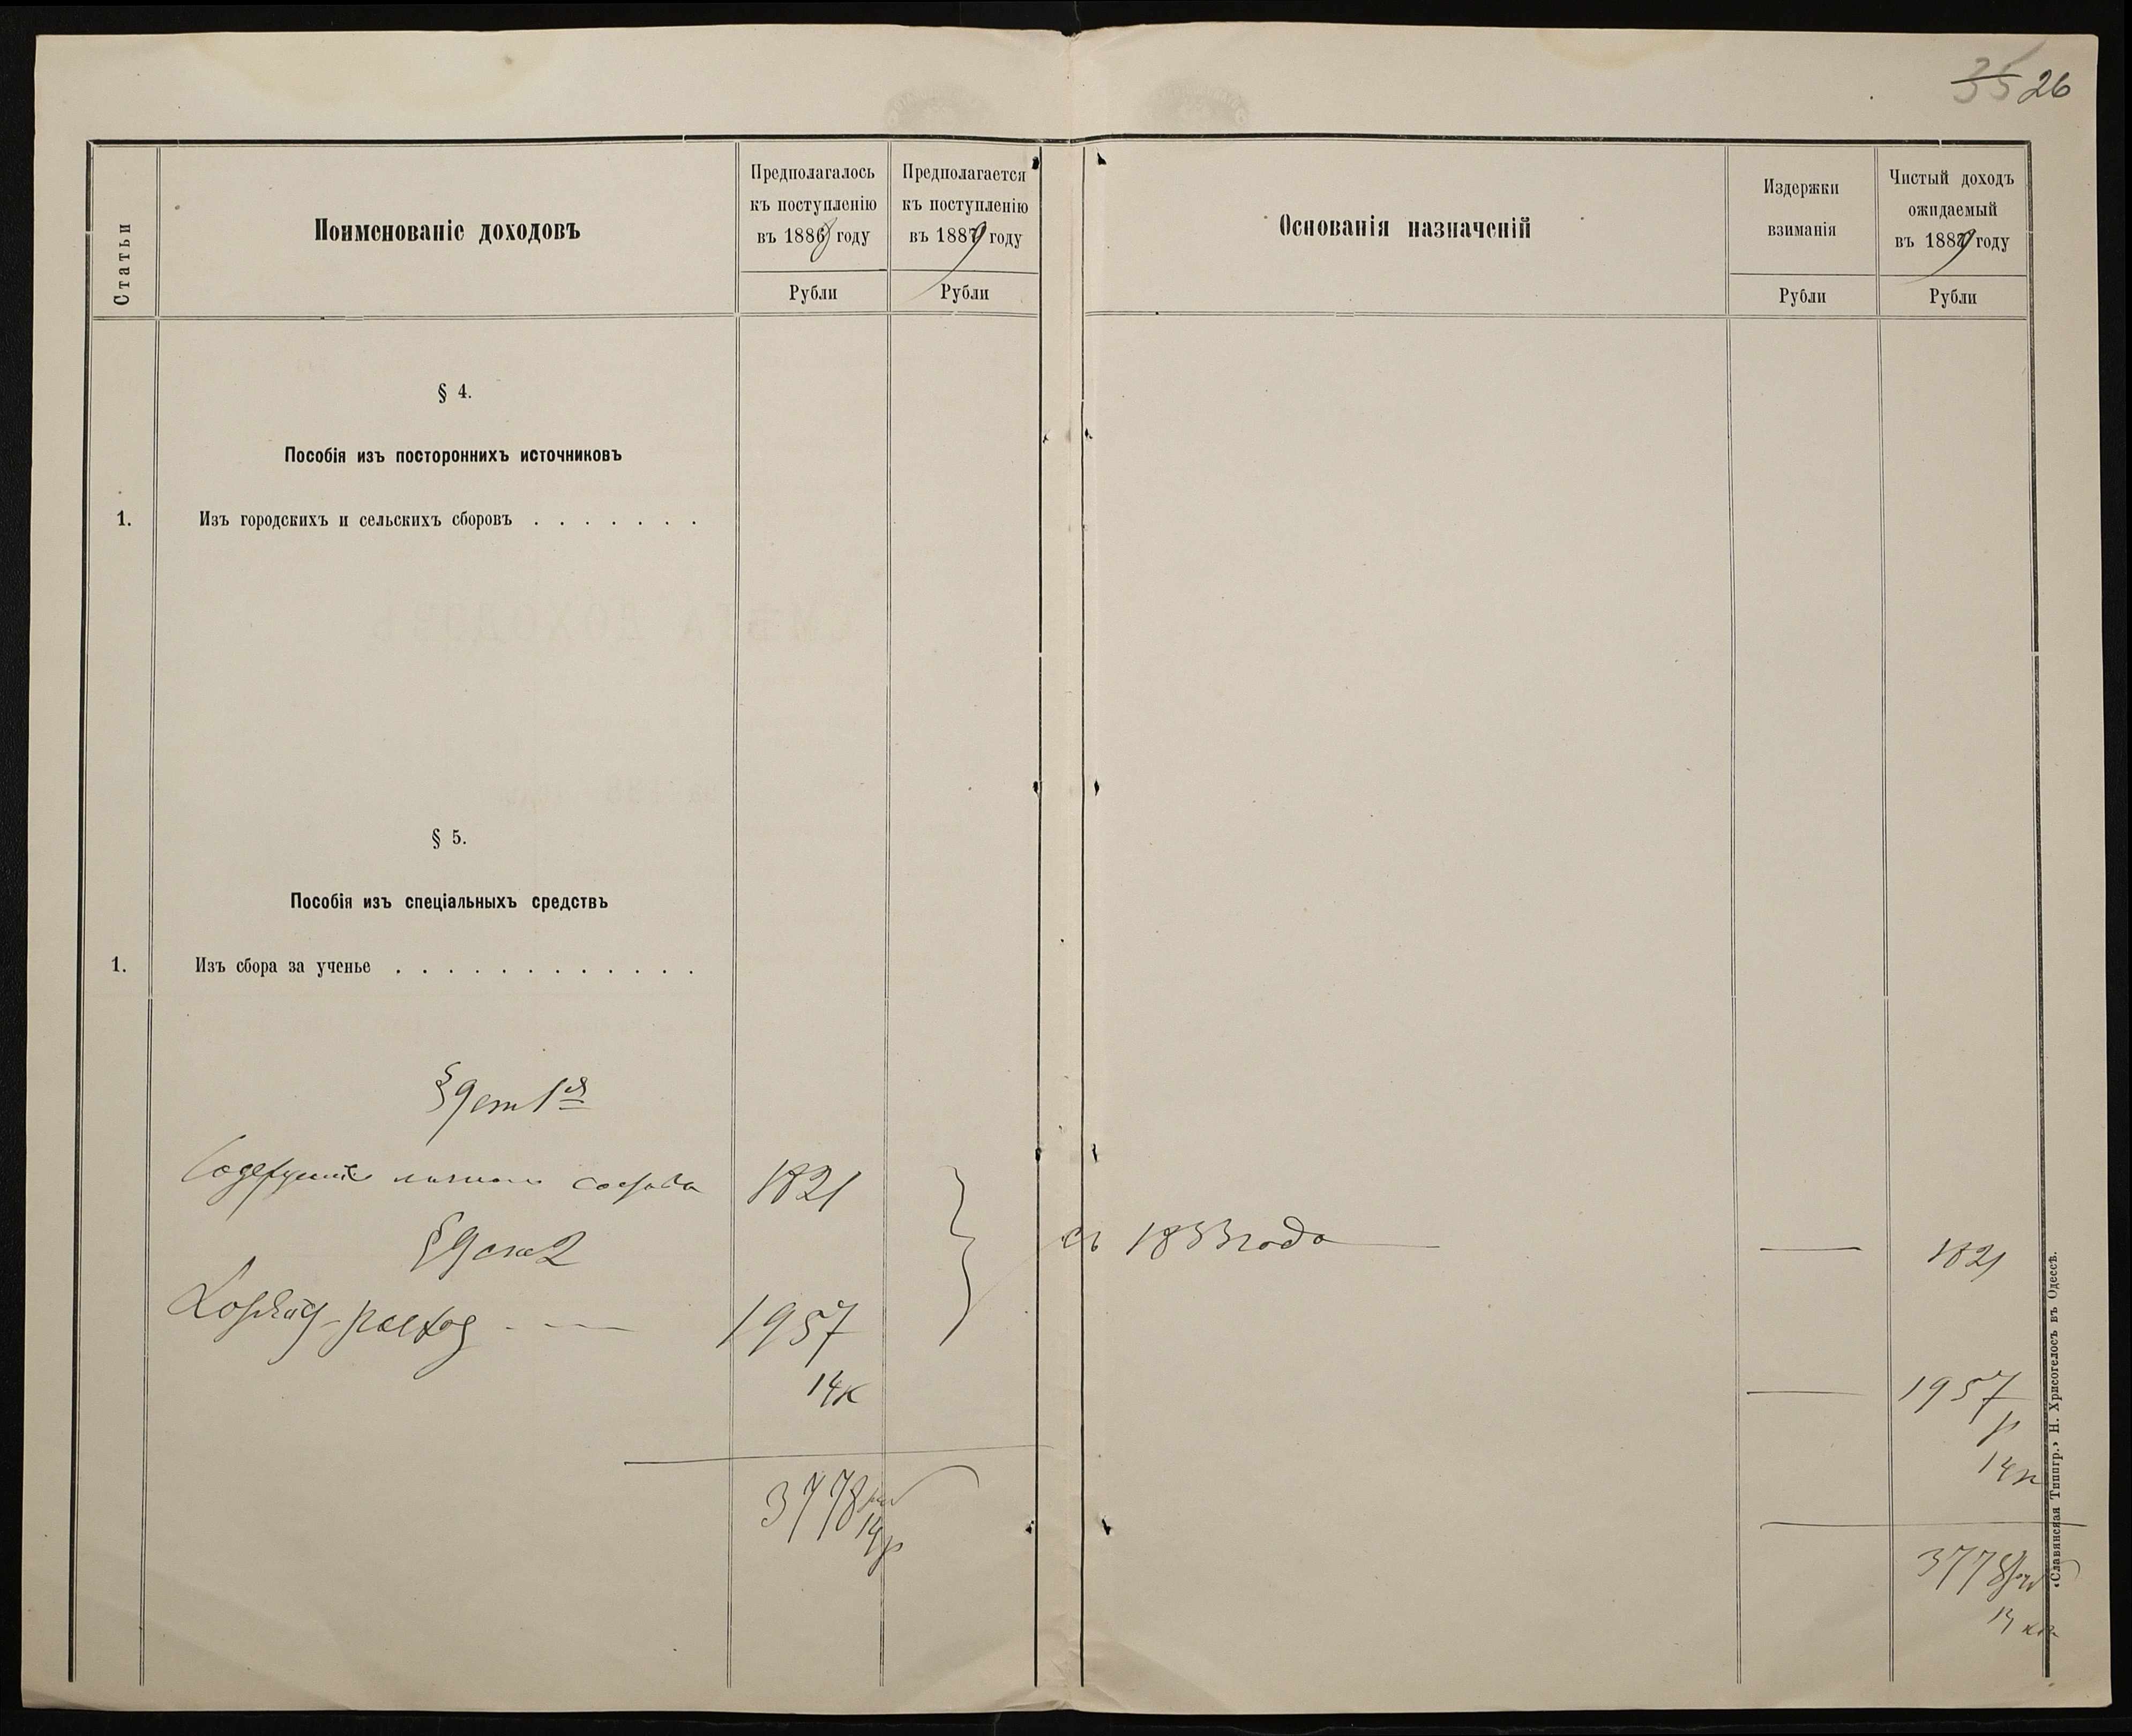 35 26
Статьи
Поименованіе доходовъ
Предполагалось
къ поступленію
въ 1888 году
Рубли
Предполагается
къ поступленію
въ 1889 году
Рубли
Основанія назначеній
Издержки
взиманія
Рубли
Чистый доходъ
ожидаемый
въ 1889 году
Рубли
§ 4.
Пособія изъ постороннихъ источниковъ
1. Изъ городскихъ и сельскихъ сборовъ . . . . . . .
§ 5.
Пособія изъ спеціальныхъ средствъ
1. Изъ сбора за ученье . . . . . . . . . . . .
§ 9 ст 1я
Содержаніе личнаго состава 1821
§ 9 ст 2
расход 1957
14к
3778
14
съ 1883 года — — 1821
— 1957
р
14к
3778
14 коп
«Славянская Типогр.» Н. Хрисогелосъ въ Одессѣ.